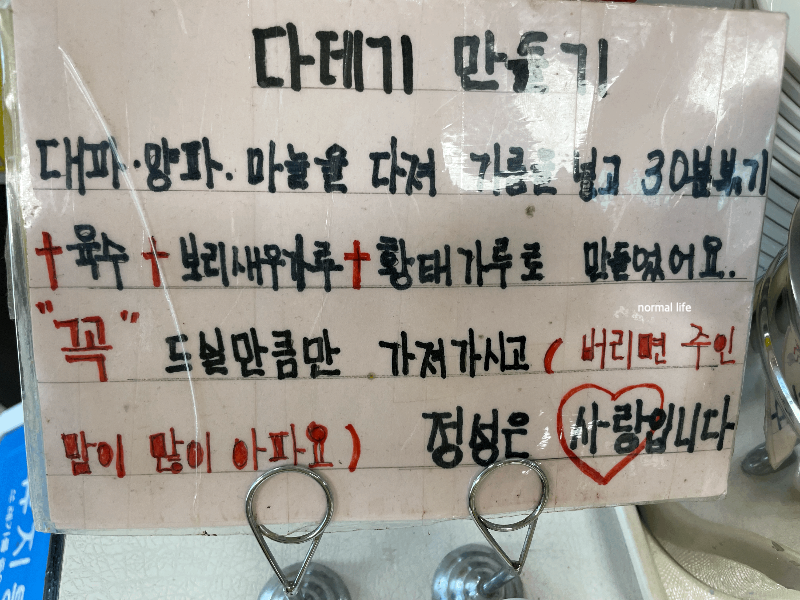 다테기 만들기
대파·양파. 마늘을 다져 기름을 넣고 30분볶기
+육수 + 보리새우가루+황태가루로 만들었어요.
"꼭" 드실만큼만 가져가시고 (버리면 주인
맘이 많이 아파요) 정성은 사랑입니다
normal life